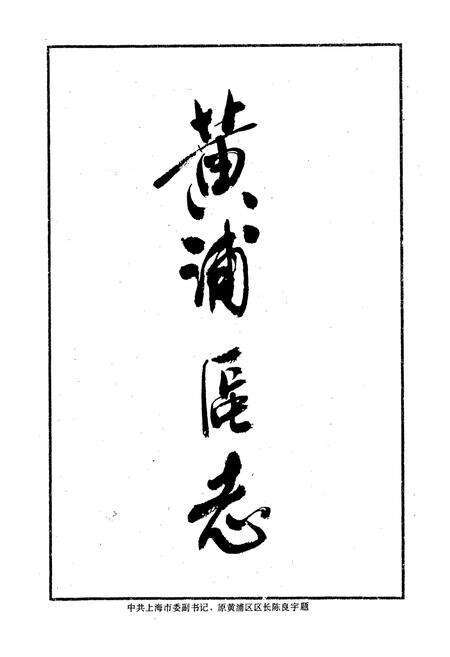 黄浦区志
中共上海市委副书记、原黄浦区区长陈良宇题